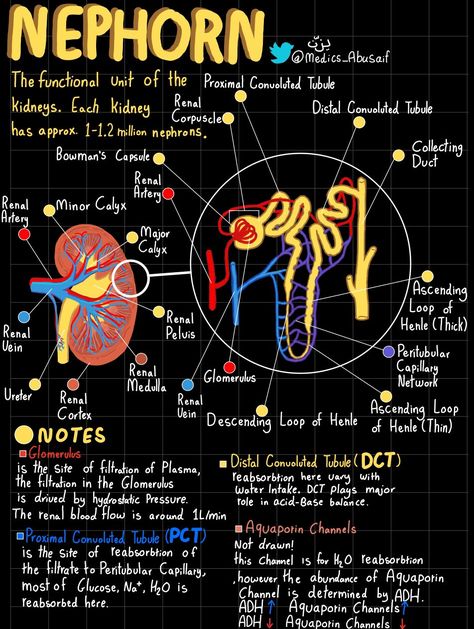 NEPHORN
لِزيّن
@Medics_Abusaif
The functional unit of the
kidneys. Each kidney
has approx. 1-1.2 million nephrons.
Proximal Convoluted Tubule
Renal
Corpuscle
Distal Convoluted Tubule
Bowman's Capsule
Collecting
Duct
Renal
Artery
Renal
Artery
Minor Calyx
Major
Calyx
Renal
Vein
Renal
Pelvis
Ascending
Loop of
Henle (Thick)
Renal
Medulla
Ureter
Renal
Cortex
Renal
Vein
Glomerulus
Peritubular
Capillary
Network
Descending Loop of Henle
Ascending Loop
of Henle (Thin)
NOTES
Glomerulus
is the site of filtration of Plasma,
the filtration in the Glomerulus
is drived by hydrostatic Pressure.
The renal blood flow is around 1L/min
Proximal Convoluted Tubule (PCT)
is the site of reabsorption of
the filtrate to Peritubular Capillary,
most of Glucose, Na⁺, H₂O is
reabsorbed here.
Distal Convoluted Tubule (DCT)
reabsorbtion here vary with
Water Intake. DCT plays major
role in acid-Base balance.
Aquaporin Channels
Not drawn!
this Channel is for H₂O reabsorbtion
,however the abundance of Aquaporin
Channel is determined by ADH.
ADH ↑ Aquaporin Channels ↑
ADH ↓ Aquaporin Channels ↓